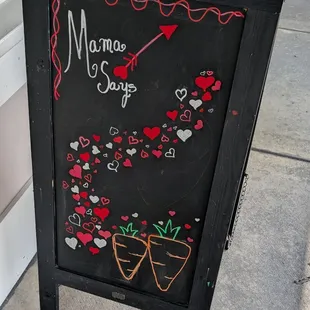 Mama
Says